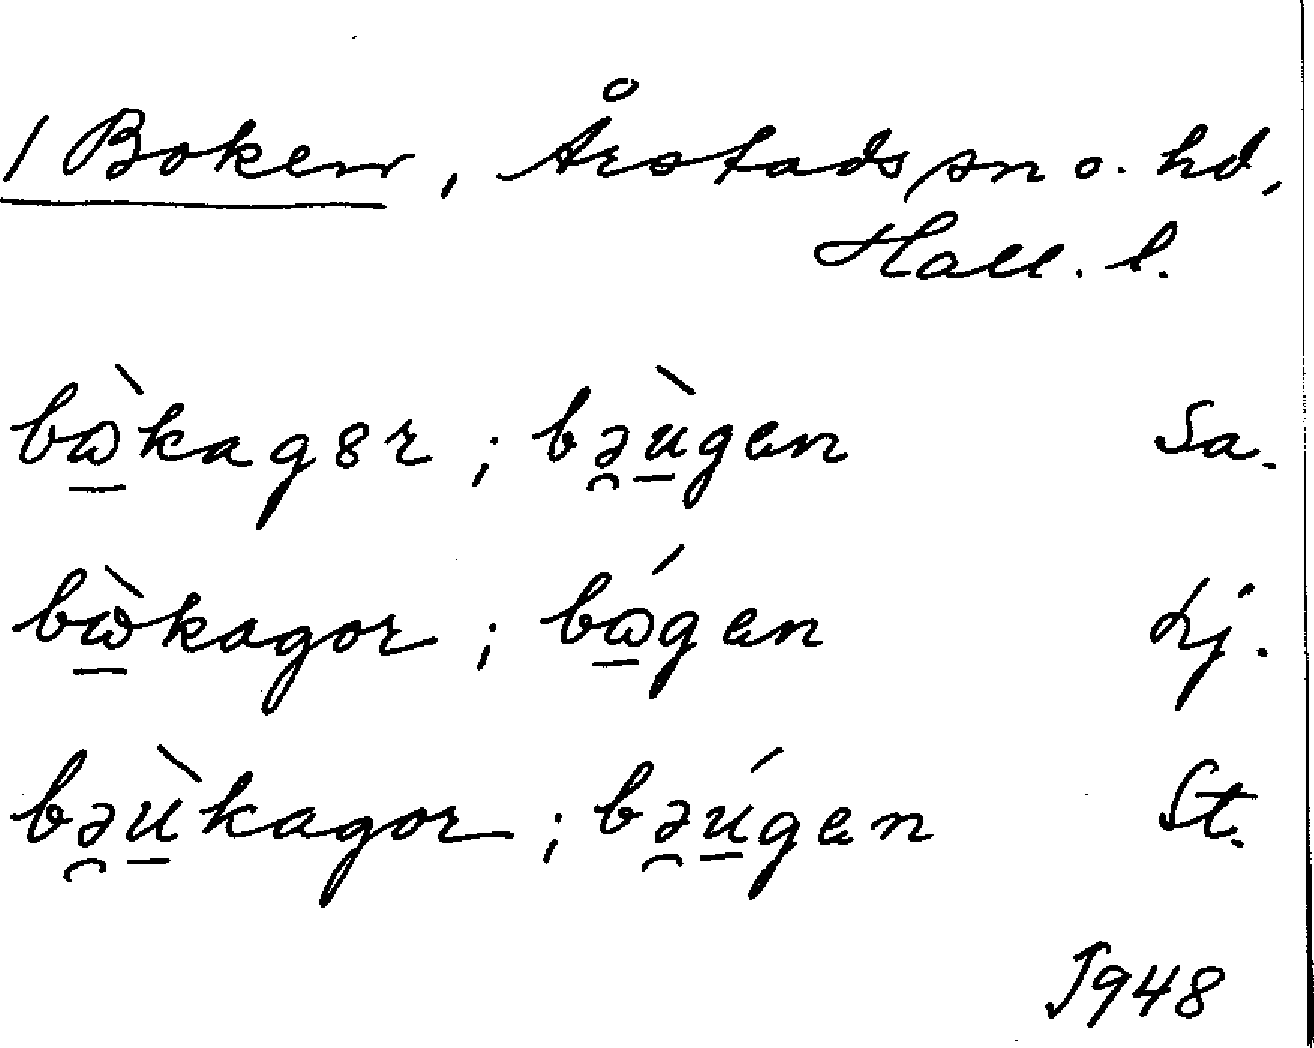 1 Boken, Årstads sn o. hd,
Hall. l.
bɷ̠̀kagȣr ; bə̯ù̠gen Sa.
bɷ̠̀kagor ; bɷ̠́gen Lj.
bə̯ù̠kagor ; bə̯ú̠gen St.
1948